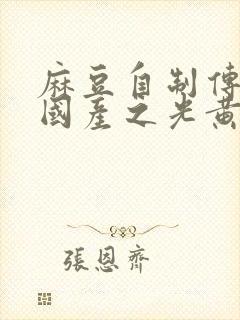 麻豆自制傳
國產之光黃
張恩齊